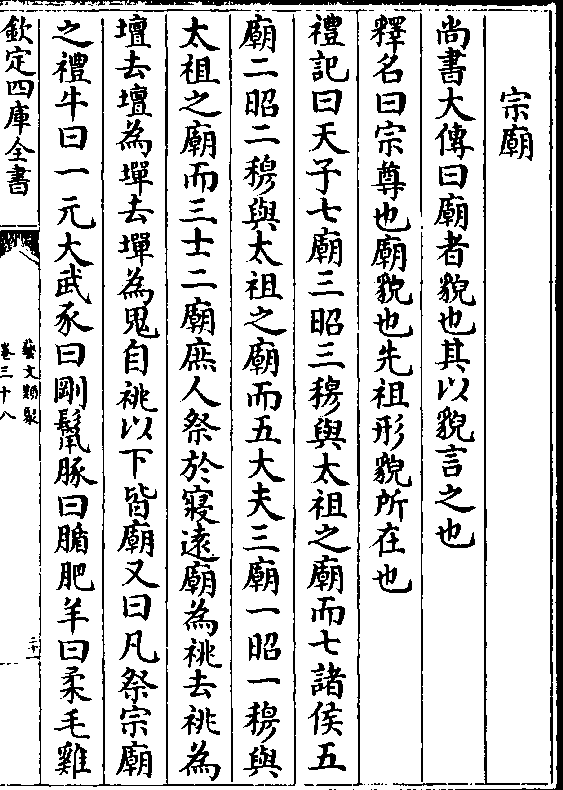 宗廟
尚書大傳曰廟者貌也其以貌言之也
釋名曰宗尊也廟貌也先祖形貌所在也
禮記曰天子七廟三昭三穆與太祖之廟而七諸侯五
廟二昭二穆與太祖之廟而五大夫三廟一昭一穆與
太祖之廟而三士二廟庶人祭於寢遠廟為祧去祧為
壇去壇為墠去墠為鬼自祧以下皆廟又曰凡祭宗廟
之禮牛曰一元大武豕曰剛鬛豚曰腯肥羊曰柔毛雞
欽定四庫全書
藝文類聚
卷三十八